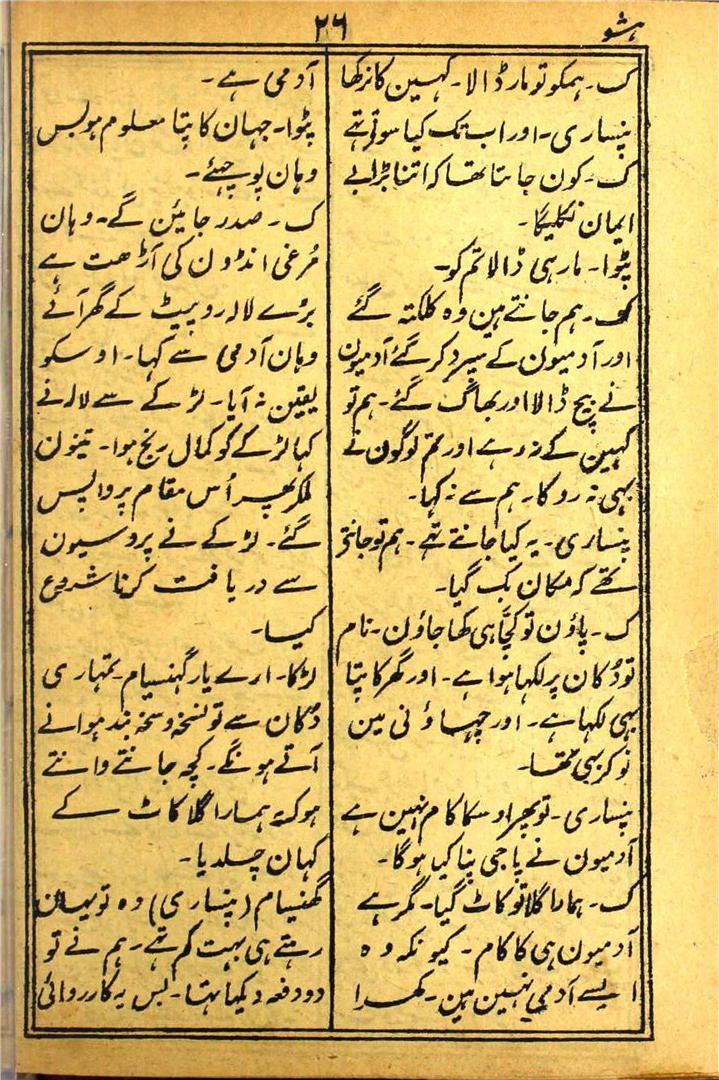 ہشو
۲۶
ک۔ ہمکو تو مار ڈالا۔ کہین کا نرکھا
پنساری۔ اور اب تک کیا سوتے تھے
ک۔ کون جانتا تھا کہ اتنا بڑا بے
ایمان نکلیگا۔
پٹوا۔ مار ہی ڈالا تم کو۔
ک۔ ہم جانتے ہین وہ کلکتہ گئے
اور آدمیون کے سپرد کر گئے آدمیون
نے بیچ ڈالا اور بھاگ گئے۔ ہم تو
کہین کے نہ رہے اور تم لوگون نے
بہی نہ روکا۔ ہم سے نہ کہا۔
پنساری۔ یہ کیا جانتے تہے۔ ہم تو جانتے
تھے کہ مکان بک گیا۔
ک۔ پاؤن تو کچّا ہی کھا جاؤن۔ نام
تو دُکان پر لکہا ہوا ہے۔ اور گھر کا پتا
بہی لکہا ہے۔ اور چہاؤنی مین
نوکر بہی تھا۔
پنساری۔ تو پھر اوسکا کام نہین ہے
آدمیون نے پاجی پنا کیا ہوگا۔
ک۔ ہمارا گلا تو کاٹ گیا۔ گمر ہے
آدمیون ہی کا کام۔ کیونکہ وہ
ایسے آدمی نہین ہین۔ کھرا
آدمی ہے۔
پٹوا۔ جہان کا پتا معلوم ہو بس
وہان پوچہئے۔
ک۔ صدر جائین گے۔ وہان
مُرغی انڈون کی آڑھت ہے
بڑے لالہ رو پیٹ کے گھر آئے
وہان آدمی سے کہا۔ اوسکو
یقین نہ آیا۔ لڑکے سے لالہ نے
کہا لڑکے کو کمال رنج ہوا۔ تینون
ملکر پھر اُس مقام پر واپس
گئے۔ لڑکے نے پروسیون
سے دریافت کرنا شروع
کیا۔
لڑکا۔ ارے یار گہنسیام۔ تمہاری
دُکان سے تو نسخہ وسخہ بندہوانے
آتے ہونگے۔ کچہ جانتے وانتے
ہو کہ ہمارا گلا کاٹ کے
کہان چلدیا۔
گھنسیام (پنساری) وہ تو یہان
رہتے ہی بہت کم تہے۔ ہم نے تو
دو دفعہ دیکہا ہتا۔ بس یہ کارروائی